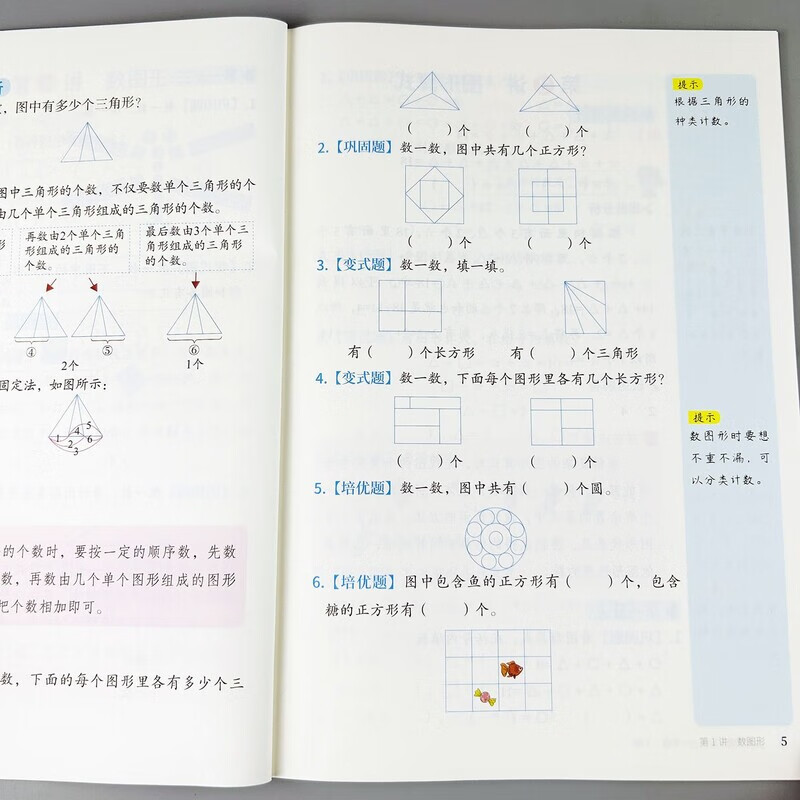 析
，图中有多少个三角形？
图中三角形的个数，不仅要数单个三角形的个
由几个单个三角形组成的三角形的个数。
形
再数由2个单个三角
形组成的三角形的
个数。
最后数由3个单个三
角形组成的三角形
的个数。
④
⑤
⑥
2个
1个
固定法，如图所示：
1
2
3
4
5
6
的个数时，要按一定的顺序数，先数
数，再数由几个单个图形组成的图形
把个数相加即可。
数，下面的每个图形里各有多少个三
（ ）个 （ ）个
2.【巩固题】 数一数，图中共有几个正方形？
（ ）个 （ ）个
3.【变式题】 数一数，填一填。
有（ ）个长方形 有（ ）个三角形
4.【变式题】 数一数，下面每个图形里各有几个长方形？
（ ）个 （ ）个
5.【培优题】 数一数，图中共有（ ）个圆。
6.【培优题】 图中包含鱼的正方形有（ ）个，包含
糖的正方形有（ ）个。
提示
根据三角形的
种类计数。
提示
数图形时要想
不重不漏，可
以分类计数。
第1讲 数图形 5